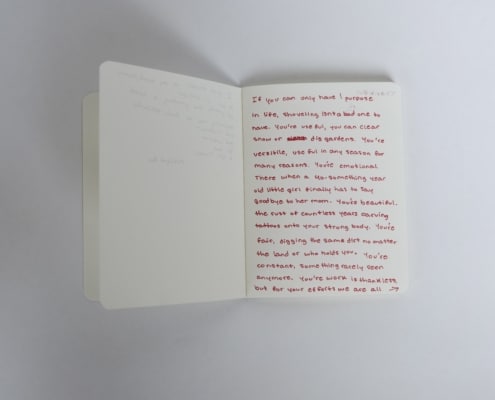 If you can only have 1 purpose
in life, shoveling isn't a bad one to
have. You're useful, you can clear
snow or dig gardens. You're
versitile, useful in any season for
many reasons. You're emotional.
There when a 40-something year
old little girl finally has to say
goodbye to her mom. You're beautiful.
the rust of countless years carving
tattoos onto your strong body. You're
fair, digging the same dirt no matter
the land or who holds you. You're
constant, something rarely seen
anymore. You're work is thankless,
but for your efforts we are all